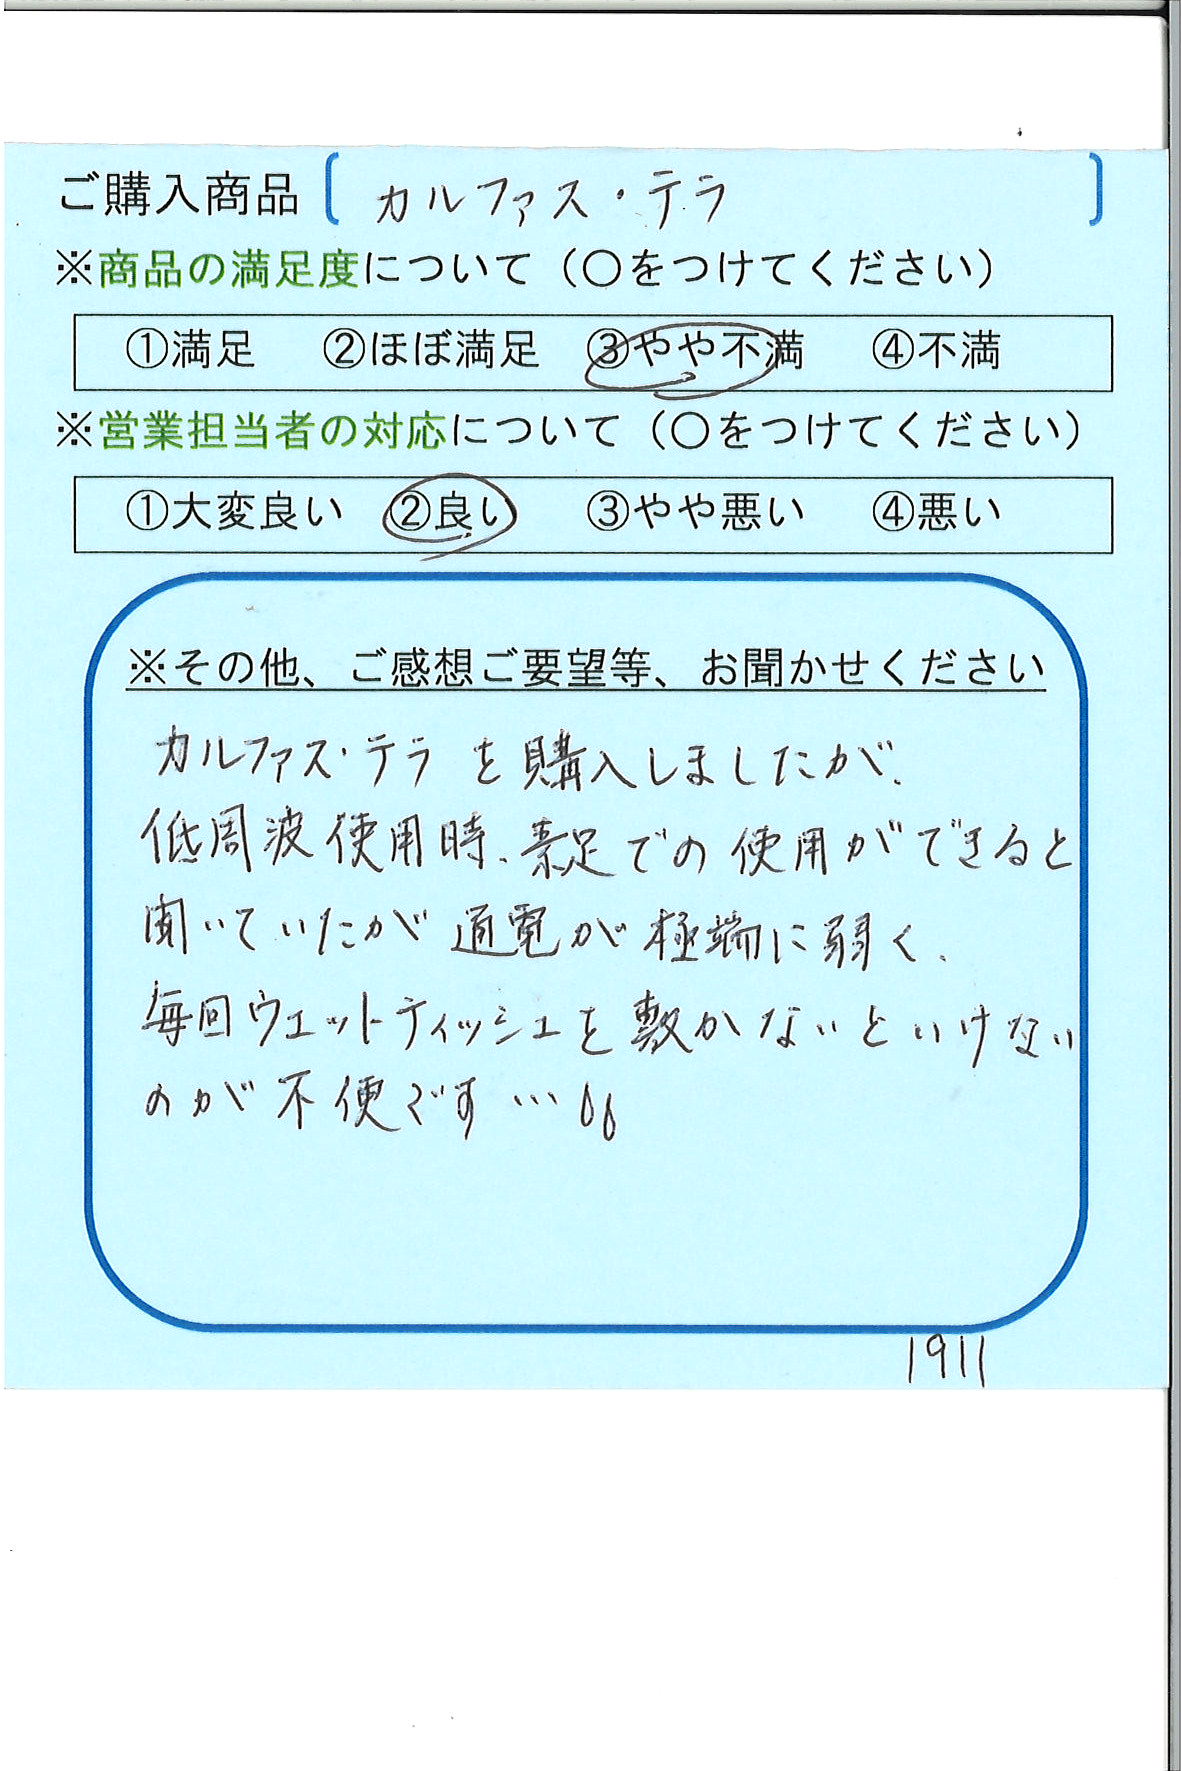 ご購入商品〔カルファス・テラ〕
※商品の満足度について（○をつけてください）
①満足　②ほぼ満足　③やや不満　④不満
※営業担当者の対応について（○をつけてください）
①大変良い　②良い　③やや悪い　④悪い
※その他、ご感想ご要望等、お聞かせください
カルファス・テラを購入しましたが、
低周波使用時、素足での使用ができると
聞いていたが通電が極端に弱く、
毎回ウェットティッシュを敷かないといけない
のが不便です…
1911